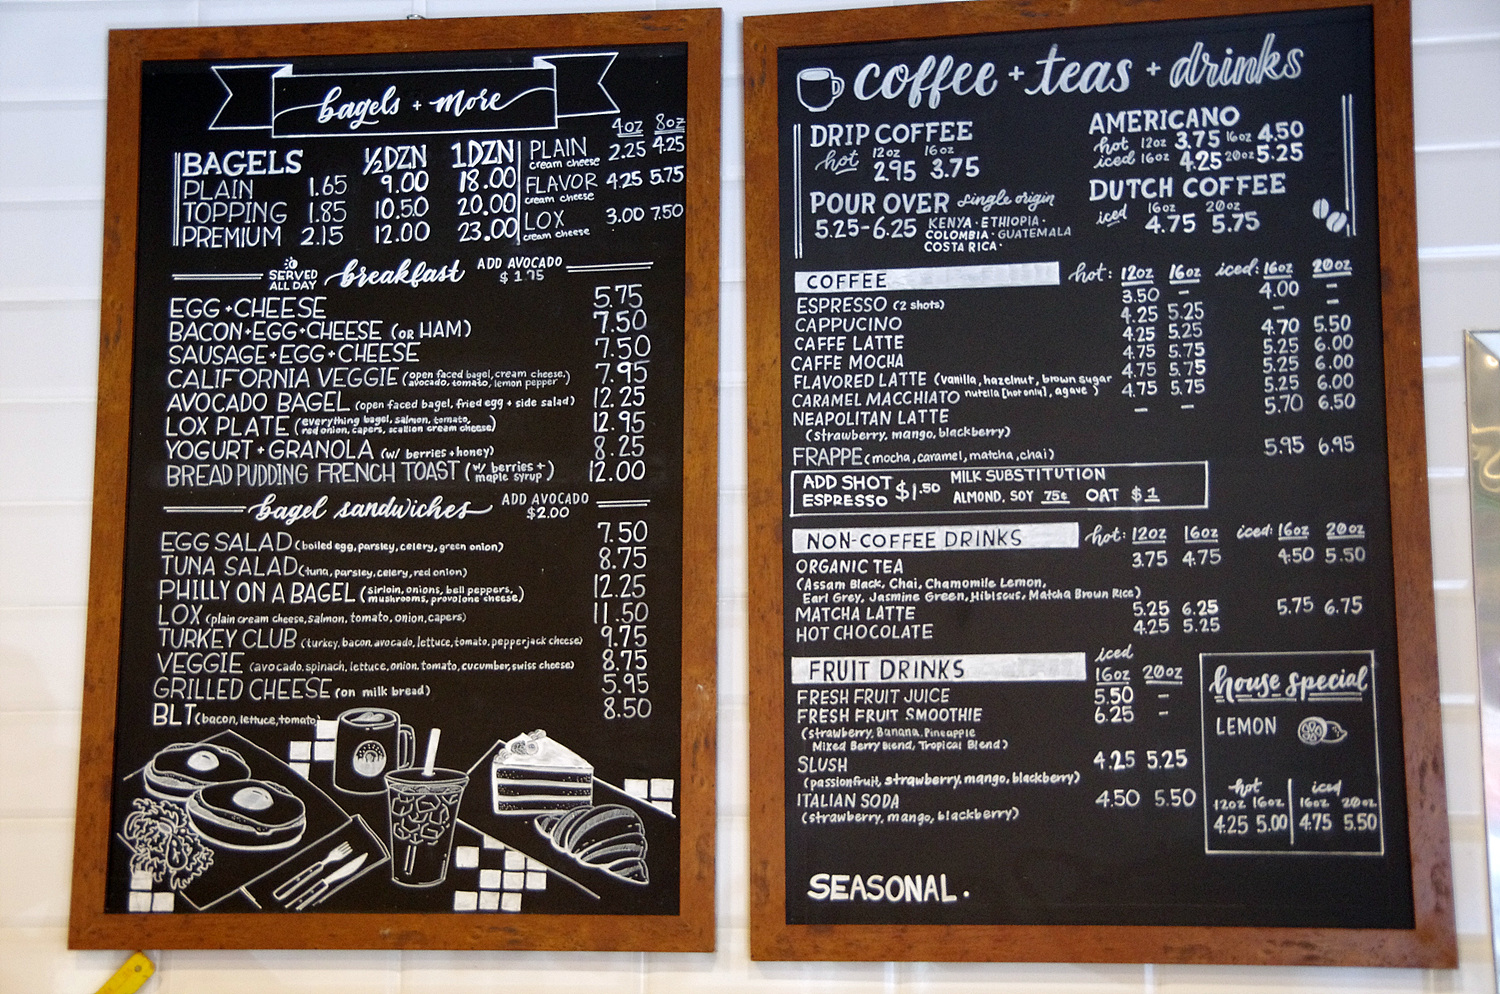 bagels + more
4oz 8oz
BAGELS 1/2DZN 1DZN
PLAIN 1.65 9.00 18.00
TOPPING 1.85 10.50 20.00
PREMIUM 2.15 12.00 23.00
PLAIN cream cheese 2.25 4.25
FLAVOR cream cheese 4.25 5.75
LOX cream cheese 3.00 7.50
SERVED ALL DAY breakfast ADD AVOCADO $1.75
EGG+CHEESE 5.75
BACON+EGG+CHEESE (OR HAM) 7.50
SAUSAGE+EGG+CHEESE 7.50
CALIFORNIA VEGGIE (open faced bagel, cream cheese, avocado, tomato, lemon pepper) 7.95
AVOCADO BAGEL (open faced bagel, fried egg + side salad) 12.25
LOX PLATE (everything bagel, salmon, tomato, red onion, capers, scallion cream cheese) 12.95
YOGURT+GRANOLA (w/ berries +honey) 8.25
BREAD PUDDING FRENCH TOAST (w/ berries + maple syrup) 12.00
bagel sandwiches ADD AVOCADO $2.00
EGG SALAD (boiled egg, parsley, celery, green onion) 7.50
TUNA SALAD (tuna, parsley, celery, red onion) 8.75
PHILLY ON A BAGEL (sirloin, onions, bell peppers, mushrooms, provolone cheese) 12.25
LOX (plain cream cheese, salmon, tomato, onion, capers) 11.50
TURKEY CLUB (turkey, bacon, avocado, lettuce, tomato, pepperjack cheese) 9.75
VEGGIE (avocado, spinach, lettuce, onion, tomato, cucumber, swiss cheese) 8.75
GRILLED CHEESE (on milk bread) 5.95
BLT (bacon, lettuce, tomato) 8.50
coffee + teas + drinks
DRIP COFFEE
hot 12oz 2.95 16oz 3.75
POUR OVER single origin
5.25-6.25 KENYA · ETHIOPIA ·
COLOMBIA · GUATEMALA
COSTA RICA ·
AMERICANO
hot 12oz 3.75 16oz 4.50
iced 16oz 4.25 20oz 5.25
DUTCH COFFEE
iced 16oz 4.75 20oz 5.75
COFFEE hot: 12oz 16oz iced: 16oz 20oz
ESPRESSO (2 shots) 3.50 - 4.00 -
CAPPUCINO 4.25 5.25 - -
CAFFE LATTE 4.25 5.25 4.70 5.50
CAFFE MOCHA 4.75 5.75 5.25 6.00
FLAVORED LATTE (vanilla, hazelnut, brown sugar 4.75 5.75 5.25 6.00
nutella [hot only], agave)
CARAMEL MACCHIATO 4.75 5.75 5.25 6.00
NEAPOLITAN LATTE - - 5.70 6.50
(strawberry, mango, blackberry)
FRAPPE (mocha, caramel, matcha, chai) 5.95 6.95
ADD SHOT ESPRESSO $1.50
MILK SUBSTITUTION
ALMOND, SOY 75¢ OAT $1
NON-COFFEE DRINKS hot: 12oz 16oz iced: 16oz 20oz
ORGANIC TEA 3.75 4.75 4.50 5.50
(Assam Black, Chai, Chamomile Lemon,
Earl Grey, Jasmine Green, Hibiscus, Matcha Brown Rice)
MATCHA LATTE 5.25 6.25 5.75 6.75
HOT CHOCOLATE 4.25 5.25
FRUIT DRINKS iced 16oz 20oz
FRESH FRUIT JUICE 5.50 -
FRESH FRUIT SMOOTHIE 6.25 -
(strawberry, Banana, Pineapple
Mixed Berry Blend, Tropical Blend)
SLUSH 4.25 5.25
(passionfruit, strawberry, mango, blackberry)
ITALIAN SODA 4.50 5.50
(strawberry, mango, blackberry)
house special
LEMON
hot iced
12oz 16oz 16oz 20oz
4.25 5.00 4.75 5.50
SEASONAL.